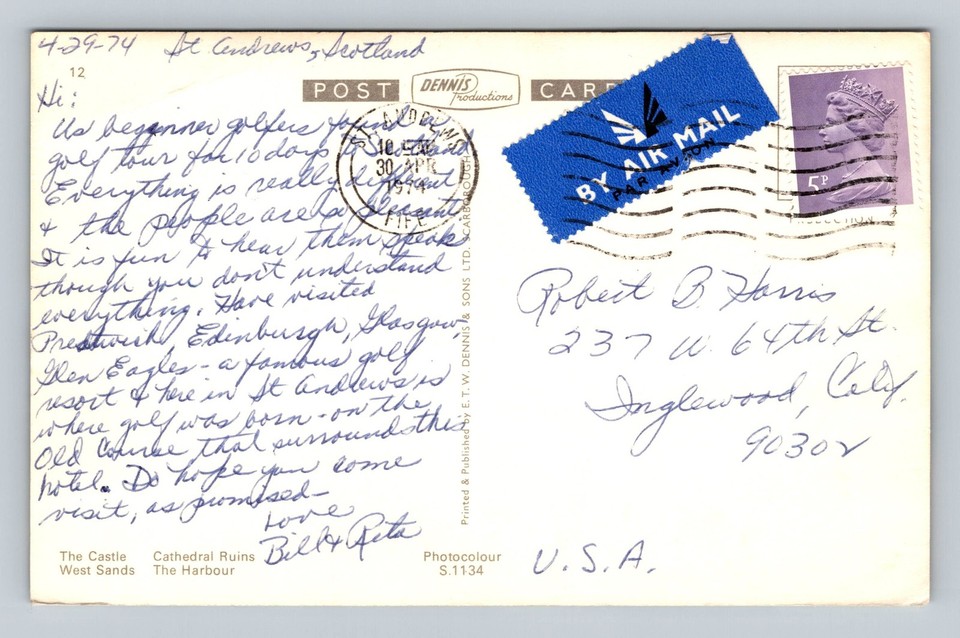 4-29-74 St Andrews, Scotland
12
POST DENNIS Productions CARD
Hi:
Us beginner golfers found a
golf tour for 10 days in Scotland
Everything is really different
& the people are so pleasant
It is fun to hear them speak
though you don't understand
everything. Have visited
Prestwick, Edinburgh, Glasgow,
Glen Eagles - a famous golf
resort & here in St Andrews is
where golf was born - on the
Old Course that surrounds this
hotel. Do hope you come
visit, as promised -
Love
Bill & Rita
ST. ANDREWS
30 APR
FIFE
BY AIR MAIL
PAR AVION
5P
Robert B Harris
237 W. 64th St.
Inglewood, Calif.
90302
U.S.A.
Printed & Published by E. T. W. DENNIS & SONS LTD. SCARBOROUGH
The Castle Cathedral Ruins
West Sands The Harbour
Photocolour
S.1134